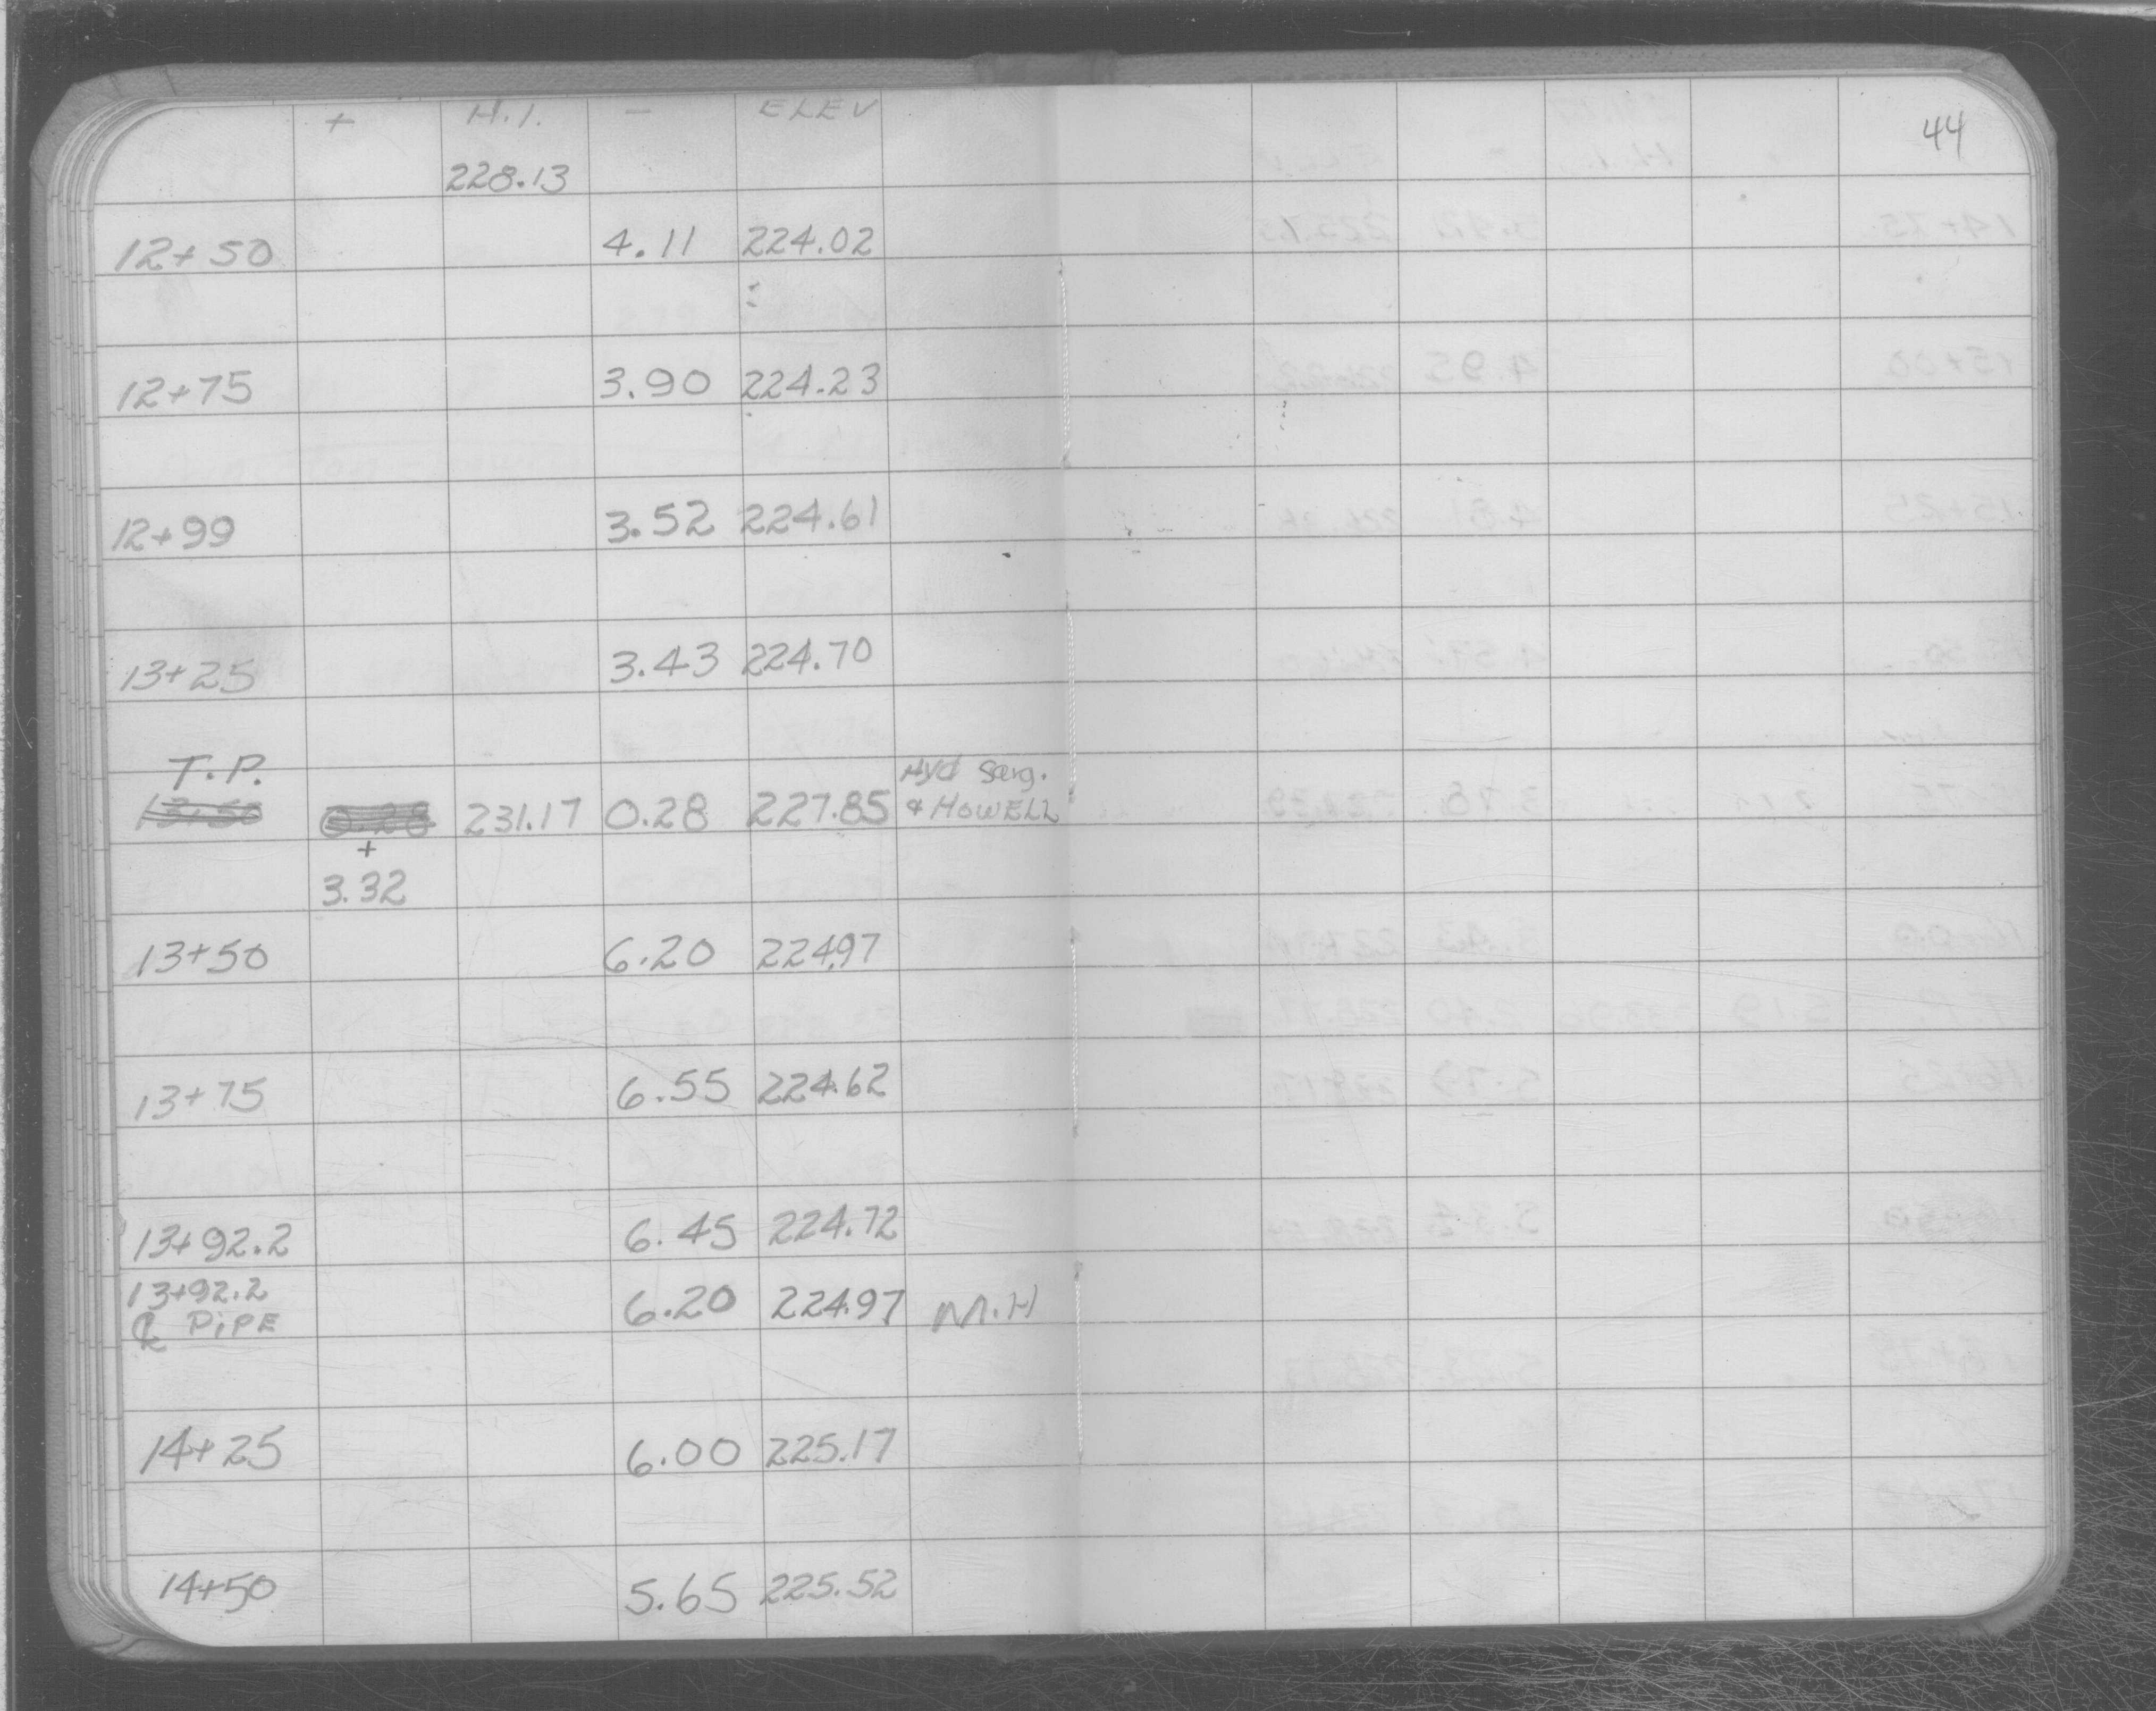 + H.I. - ELEV
44
228.13
12+50 4.11 224.02
12+75 3.90 224.23
12+99 3.52 224.61
13+25 3.43 224.70
T.P. Hyd Sarg.
13+50 0.28 231.17 0.28 227.85 & HOWELL
+
3.32
13+50 6.20 224.97
13+75 6.55 224.62
13+92.2 6.45 224.72
13+92.2 6.20 224.97 M.H
℄ PIPE
14+25 6.00 225.17
14+50 5.65 225.52